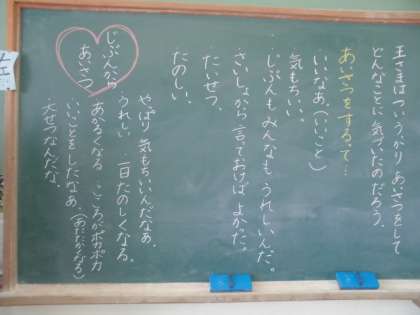 王さまはついうっかりあいさつをして
どんなことに気づいたのだろう。
あいさつをするって…
・いいなあ。(いいこと)
気もちいい。
・じぶんもみんなもうれしいんだ。
・さいしょから言っておけばよかった。
・たいせつ。
・たのしい。
じぶんから
あいさつ
やっぱり気もちいいんだなあ。
うれしい 一日たのしくなる。
あかるくなる こころがポカポカ
いいことをしたなあ。(あたたかくなる)
大せつなんだな。